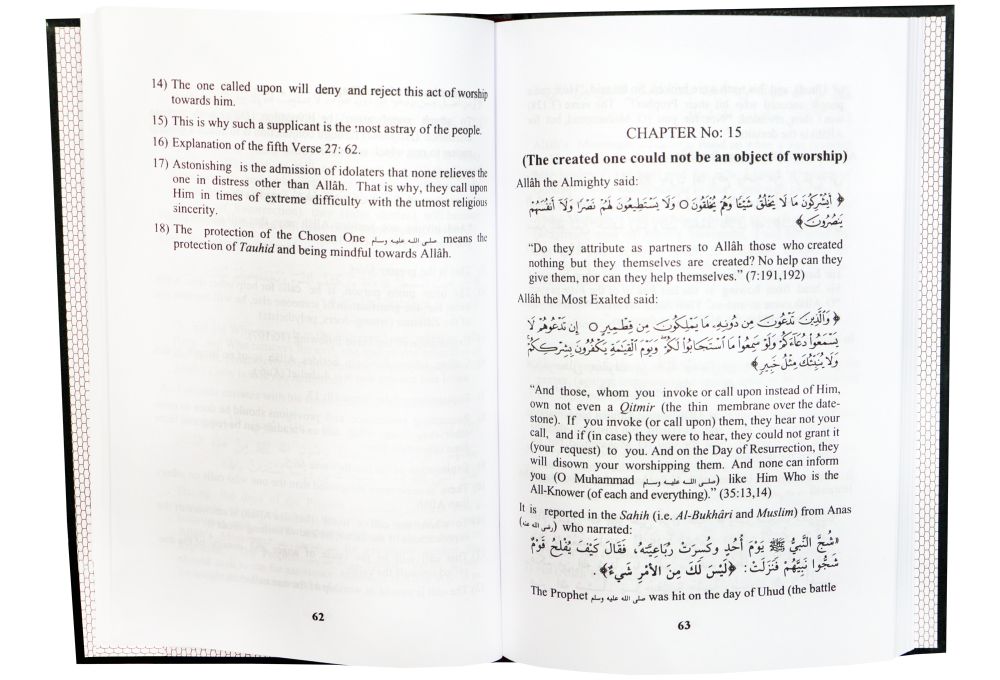 14) The one called upon will deny and reject this act of worship
towards him.
15) This is why such a supplicant is the most astray of the people.
16) Explanation of the fifth Verse 27: 62.
17) Astonishing is the admission of idolaters that none relieves the
one in distress other than Allâh. That is why, they call upon
Him in times of extreme difficulty with the utmost religious
sincerity.
18) The protection of the Chosen One صلى الله عليه وسلم means the
protection of Tauhid and being mindful towards Allâh.
62
CHAPTER No: 15
(The created one could not be an object of worship)
Allâh the Almighty said:
﴿ أَيُشْرِكُونَ مَا لَا يَخْلُقُ شَيْئًا وَهُمْ يُخْلَقُونَ ○ وَلَا يَسْتَطِيعُونَ لَهُمْ نَصْرًا وَلَآ أَنْفُسَهُمْ
يَنْصُرُونَ ﴾
“Do they attribute as partners to Allâh those who created
nothing but they themselves are created? No help can they
give them, nor can they help themselves.” (7:191,192)
Allâh the Most Exalted said:
﴿ وَالَّذِينَ تَدْعُونَ مِن دُونِهِ، مَا يَمْلِكُونَ مِن قِطْمِيرٍ ○ إِن تَدْعُوهُمْ لَا
يَسْمَعُوا دُعَآءَكُمْ وَلَوْ سَمِعُوا مَا ٱسْتَجَابُوا لَكُمْ وَيَوْمَ ٱلْقِيَٰمَةِ يَكْفُرُونَ بِشِرْكِكُمْ
وَلَا يُنَبِّئُكَ مِثْلُ خَبِيرٍ ﴾
“And those, whom you invoke or call upon instead of Him,
own not even a Qitmir (the thin membrane over the date-
stone). If you invoke (or call upon) them, they hear not your
call, and if (in case) they were to hear, they could not grant it
(your request) to you. And on the Day of Resurrection, they
will disown your worshipping them. And none can inform
you (O Muhammad صلى الله عليه وسلم) like Him Who is the
All-Knower (of each and everything).” (35:13,14)
It is reported in the Sahih (i.e. Al-Bukhâri and Muslim) from Anas
(رضى الله عنه) who narrated:
«شُجَّ النَّبِيُّ ﷺ يَوْمَ أُحُدٍ وَكُسِرَتْ رُبَاعِيَتُهُ، فَقَالَ كَيْفَ يُفْلِحُ قَوْمٌ
شَجُّوا نَبِيَّهُمْ فَنَزَلَتْ: ﴿لَيْسَ لَكَ مِنَ الأَمْرِ شَيْءٌ﴾.
The Prophet صلى الله عليه وسلم was hit on the day of Uhud (the battle
63